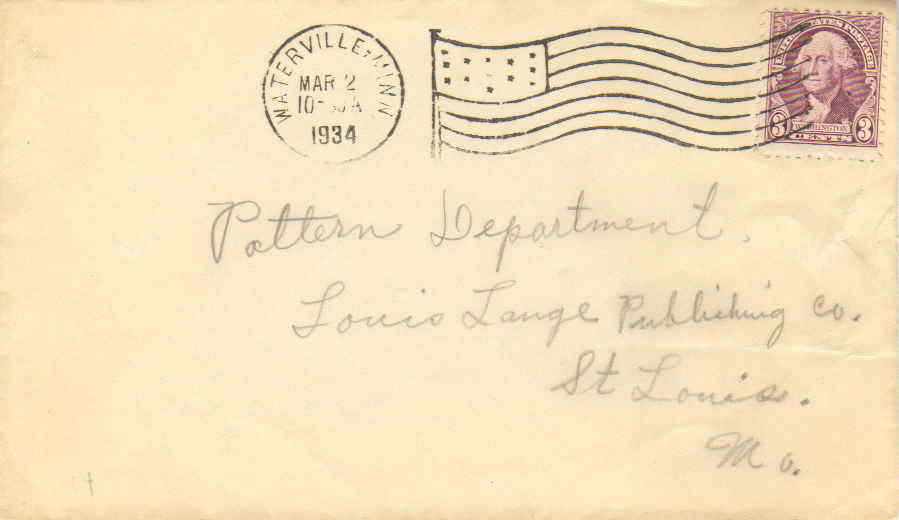 WATERVILLE-MINN
MAR 2
1934
UNITED STATES POSTAGE
WASHINGTON
3 3
Pattern Department
Louis Lange Publishing Co.
St Louis.
Mo.